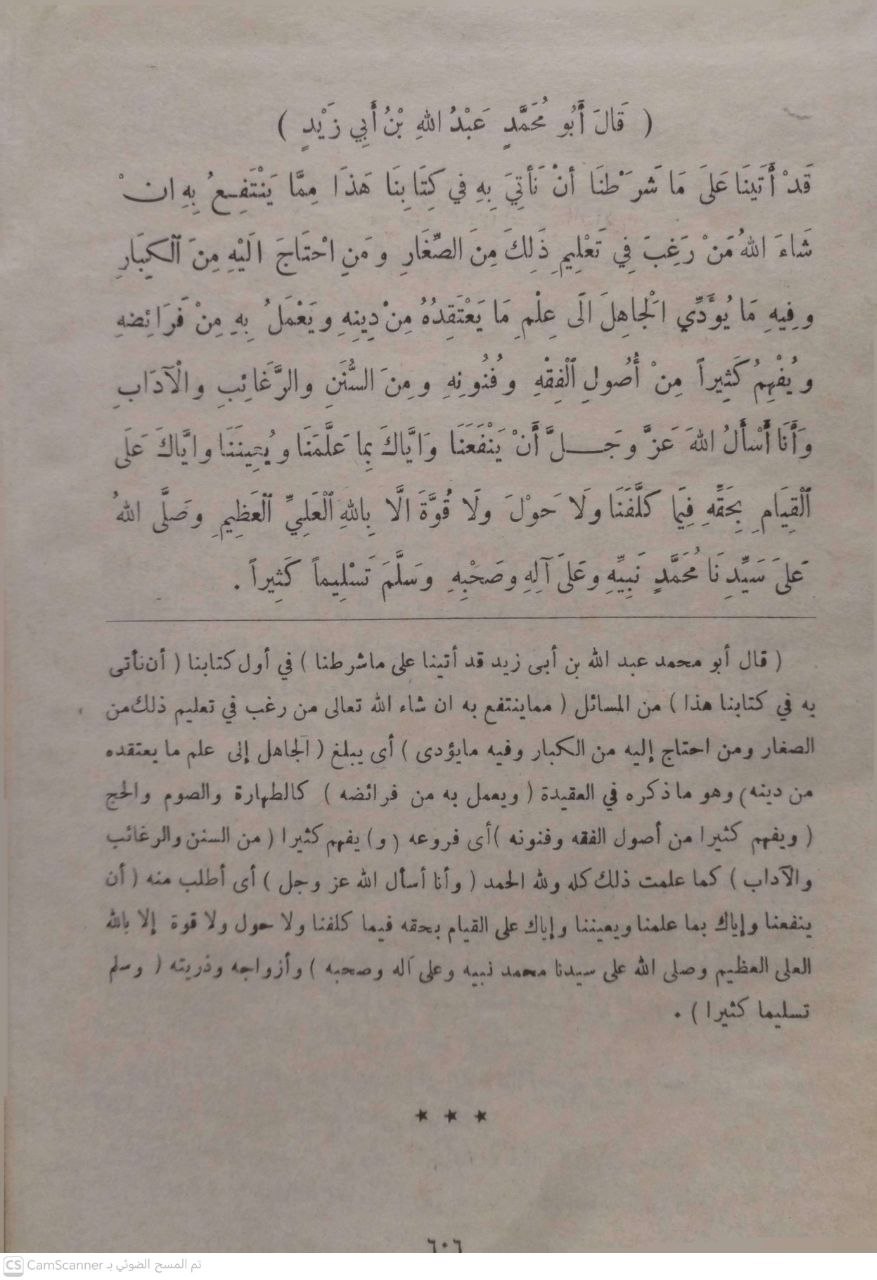 ( قَالَ أَبُو مُحَمَّدٍ عَبْدُ اللهِ بْنُ أَبِي زَيْدٍ )
قَدْ أَتَيْنَا عَلَى مَا شَرَطْنَا أَنْ نَأْتِيَ بِهِ فِي كِتَابِنَا هَذَا مِمَّا يَنْتَفِعُ بِهِ انْ
شَاءَ اللهُ مَنْ رَغِبَ فِي تَعْلِيمِ ذَلِكَ مِنَ الصِّغَارِ وَمَنِ احْتَاجَ الَيْهِ مِنَ ٱلْكِبَارِ
وفِيهِ مَا يُؤَدِّي الْجَاهِلَ الَى عِلْمِ مَا يَعْتَقِدُهُ مِنْ دِينِهِ ويَعْمَلُ بِهِ مِنْ فَرَائِضِهِ
ويُفْهِمُ كَثِيراً مِنْ أُصُولِ ٱلْفِقْهِ وفُنُونِهِ ومِنَ السُّنَنِ والرَّغَائِبِ والْآدَابِ
وَأَنَا أَسْأَلُ اللهَ عَزَّ وجَلَّ أَنْ يَنْفَعَنَا وَايَّاكَ بِمَا عَلَّمَنَا ويُعِينَنَا وايَّاكَ عَلَى
ٱلْقِيَامِ بِحَقِّهِ فِيَما كَلَّفَنَا ولَا حَوْلَ ولَا قُوَّةَ الَّا بِاللهِ ٱلْعَلِيِّ ٱلْعَظِيمِ وصَلَّى اللهُ
عَلَى سَيِّدِنَا مُحَمَّدٍ نَبِيِّهِ وعَلَى آلِهِ وصَحْبِهِ وسَلَّمَ تَسْلِيماً كَثِيراً .
( قال أبو محمد عبد الله بن أبى زيد قد أتينا على ماشرطنا ) في أول كتابنا ( أن نأتى
به في كتابنا هذا ) من المسائل ( مماينتفع به ان شاء الله تعالى من رغب في تعليم ذلك من
الصغار ومن احتاج إليه من الكبار وفيه مايؤدى ) أى يبلغ ( الجاهل إلى علم ما يعتقده
من دينه ) وهو ماذكره في العقيدة ( ويعمل به من فرائضه ) كالطهارة والصوم والحج
( ويفهم كثيرا من أصول الفقه وفنونه ) أى فروعه ( و ) يفهم كثيرا ( من السنن والرغائب
والآداب ) كما علمت ذلك كله ولله الحمد ( وأنا أسأل الله عز وجل ) أى أطلب منه ( أن
ينفعنا وإياك بما علمنا ويعيننا وإياك على القيام بحقه فيما كلفنا ولا حول ولا قوة إلا بالله
العلى العظيم وصلى الله على سيدنا محمد نبيه وعلى آله وصحبه ) وأزواجه وذريته ( وسلم
تسليما كثيرا ) .
★ ★ ★
٦٠٦
CS CamScanner تم المسح الضوئي بـ